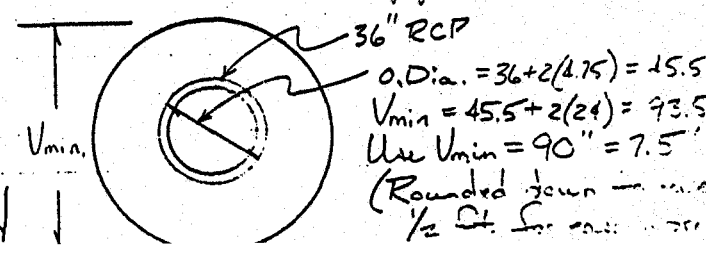 36" RCP
O. Dia. = 36+2(4.75) = 45.5
Vmin = 45.5+2(24) = 93.5
Vmin.
Use Vmin = 90" = 7.5'
(Rounded down
1/2 ft. for